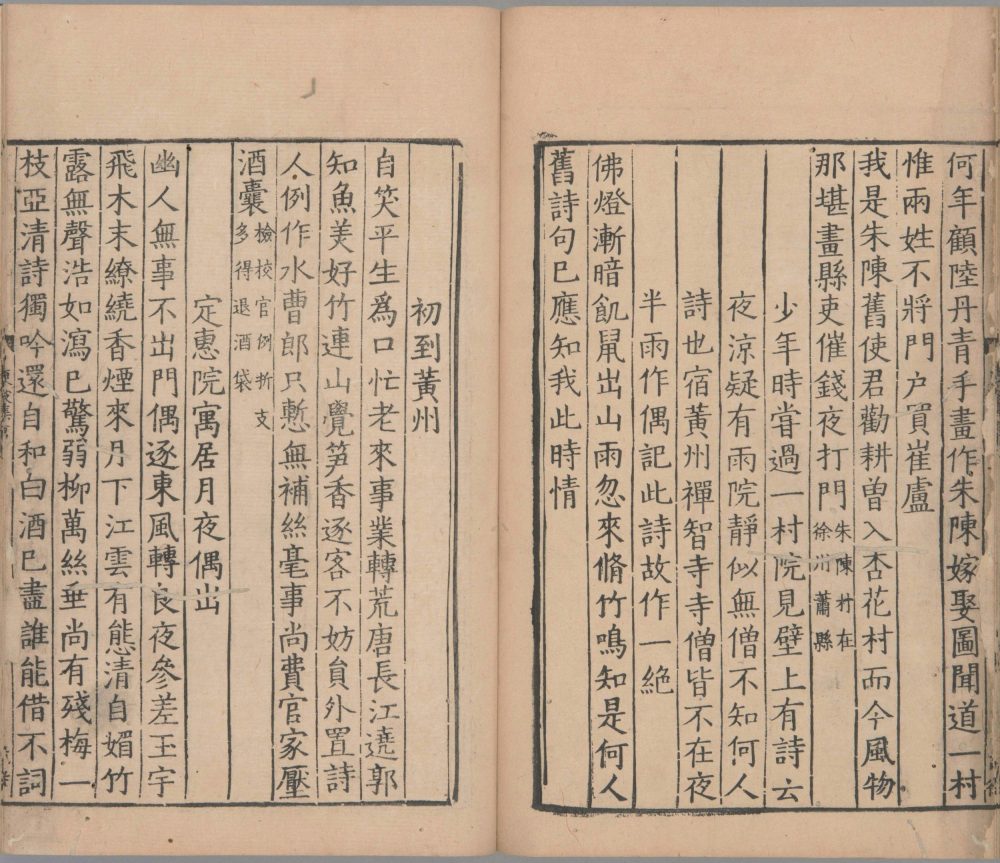 何年顧陸丹青手畫作朱陳嫁娶圖聞道一村
惟兩姓不將門户買崔盧
我是朱陳舊使君勸耕曽入杏花村而今風物
那堪畫縣吏催錢夜打門朱陳村在
徐州蕭縣
少年時甞過一村院見壁上有詩云
夜凉疑有雨院靜似無僧不知何人
詩也宿黃州禪智寺寺僧皆不在夜
半雨作偶記此詩故作一絶
佛燈漸暗飢鼠出山雨忽來脩竹鳴知是何人
舊詩句已應知我此時情
初到黃州
自笑平生爲口忙老來事業轉荒唐長江遶郭
知魚美好竹連山覺笋香逐客不妨貟外置詩
人例作水曹郎只慙無補絲毫事尚費官家壓
酒囊檢校官例折支
多得退酒袋
定惠院寓居月夜偶出
幽人無事不出門偶逐東風轉良夜參差玉宇
飛木末繚繞香煙來月下江雲有態清自媚竹
露無聲浩如瀉已驚弱柳萬絲垂尚有殘梅一
枝亞清詩獨吟還自和白酒已盡誰能借不詞